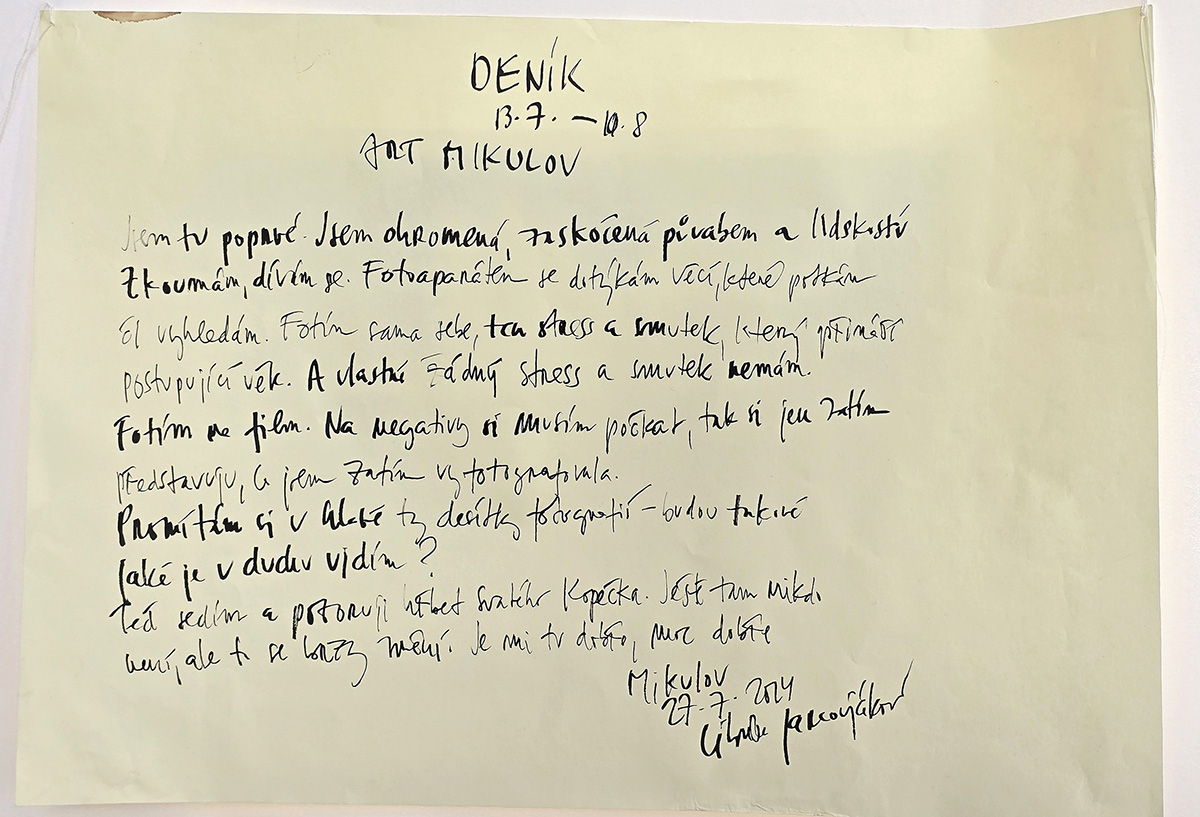 DENÍK
13.7. – 10.8
ART MIKULOV
Jsem tu poprvé. Jsem ohromená, zaskočená půvabem a lidskostí
Zkoumám, dívám se. Fotoaparátem se dotýkám věcí, které potkám
či vyhledám. Fotím sama sebe, ten stress a smutek, který přináší
postupující věk. A vlastně žádný stress a smutek nemám.
Fotím na film. Na negativy si musím počkat, tak si jen zatím
představuju, co jsem zatím vyfotografovala.
Promítám si v hlavě ty desítky fotografií – budou takové
jaké je v duchu vidím?
Teď sedím a pozoruji hřbet Svatého Kopečka. Ještě tam nikdo
není, ale to se brzy změní. Je mi tu dobře, moc dobře
Mikulov
27.7. 2024
Libuše Jarcovjáková